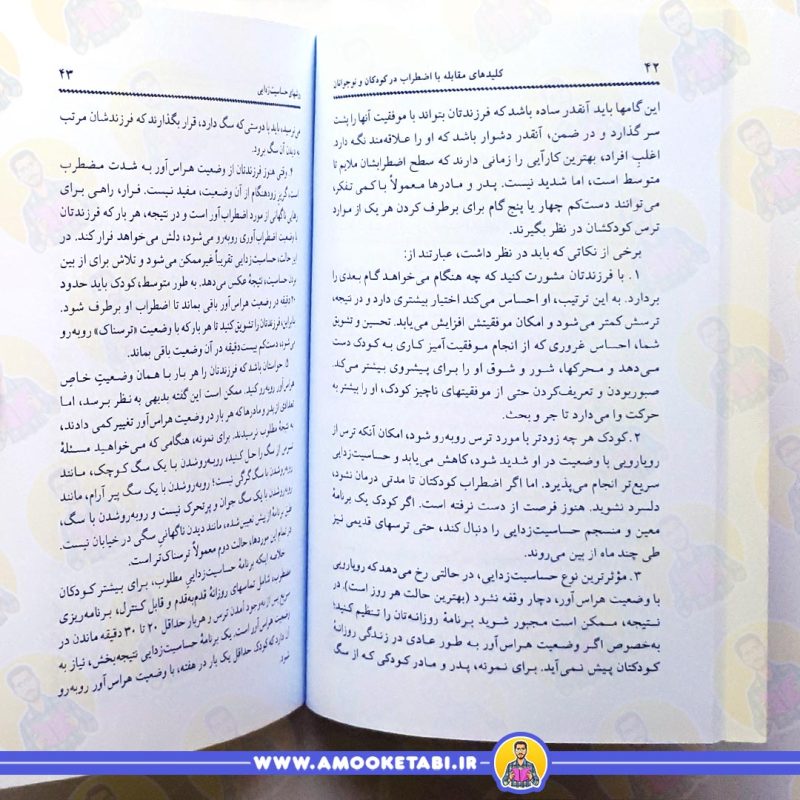 ۴۲
کلیدهای مقابله با اضطراب در کودکان و نوجوانان
این گامها باید آنقدر ساده باشد که فرزندتان بتواند با موفقیت آنها را پشت
سر گذارد و در ضمن، آنقدر دشوار باشد که او را علاقه‌مند نگه دارد.
اغلبِ افراد، بهترین کارآیی را زمانی دارند که سطح اضطرابشان ملایم تا
متوسط است، اما شدید نیست. پدر و مادرها معمولاً با کمی تفکر،
می‌توانند دست‌کم چهار یا پنج گام برای برطرف کردن هر یک از موارد
ترس کودکشان در نظر بگیرند.
برخی از نکاتی که باید در نظر داشت، عبارتند از:
۱. با فرزندتان مشورت کنید که چه هنگام می‌خواهد گام بعدی را
بردارد. به این ترتیب، او احساس می‌کند اختیار بیشتری دارد و در نتیجه،
ترسش کمتر می‌شود و امکان موفقیتش افزایش می‌یابد. تحسین و تشویق
شما، احساس غروری که از انجام موفقیت‌آمیز کاری به کودک دست
می‌دهد و محرکها، شور و شوق او را برای پیشروی بیشتر می‌کند.
صبوربودن و تعریف‌کردن حتی از موفقیتهای ناچیز کودک، او را بیشتر به
حرکت وا می‌دارد تا جر و بحث.
۲. کودک هر چه زودتر با مورد ترس روبه‌رو شود، امکان آنکه ترس از
رویارویی با وضعیت در او تشدید شود، کاهش می‌یابد و حساسیت‌زدایی
سریع‌تر انجام می‌پذیرد. اما اگر اضطراب کودکتان تا مدتی درمان نشود،
دلسرد نشوید. هنوز فرصت از دست نرفته است. اگر کودک یک برنامهٔ
معین و منسجم حساسیت‌زدایی را دنبال کند، حتی ترسهای قدیمی نیز
طی چند ماه از بین می‌روند.
۳. مؤثرترین نوع حساسیت‌زدایی، در حالتی رخ می‌دهد که رویارویی
با وضعیت هراس‌آور، دچار وقفه نشود (بهترین حالت هر روز است). در
نتیجه، ممکن است مجبور شوید برنامهٔ روزانه‌تان را تنظیم کنید؛
به‌خصوص اگر وضعیت هراس‌آور به طور عادی در زندگی روزانهٔ
کودکتان پیش نمی‌آید. برای نمونه، پدر و مادر کودکی که از سگ
۴۳
روشهای حساسیت‌زدایی
می‌ترسید، باید با دوستی که سگ دارد، قرار بگذارند که فرزندشان مرتب
به دیدن آن سگ برود.
۴. وقتی هنوز فرزندتان از وضعیت هراس‌آور به شدت مضطرب
است، گریز زودهنگام از آن وضعیت، مفید نیست. فرار، راهی برای
رهایی ناگهانی از مورد اضطراب‌آور است و در نتیجه، هر بار که فرزندتان
با وضعیت اضطراب‌آوری روبه‌رو می‌شود، دلش می‌خواهد فرار کند. در
این حالت، حساسیت‌زدایی تقریباً غیرممکن می‌شود و تلاش برای از بین
بردن حساسیت، نتیجهٔ عکس می‌دهد. به طور متوسط، کودک باید حدود
۲۰ دقیقه در وضعیت هراس‌آور باقی بماند تا اضطراب او برطرف شود.
بنابراین، فرزندتان را تشویق کنید تا هر بار که با وضعیت «ترسناک» روبه‌رو
می‌شود، دست‌کم بیست‌دقیقه در آن وضعیت باقی بماند.
۵. حواستان باشد که فرزندتان را هر بار با همان وضعیتِ خاص
هراس‌آور روبه‌رو کنید. ممکن است این گفته بدیهی به نظر برسد، اما
تعدادی از پدر و مادرها که هر بار در وضعیت هراس‌آور تغییر کمی دادند،
به نتیجهٔ مطلوب نرسیدند. برای نمونه، هنگامی که می‌خواهید مسئلهٔ
ترس از سگ را حل کنید، روبه‌روشدن با یک سگ کوچک، مانند
روبه‌روشدن با سگ گرگی نیست؛ روبه‌روشدن با یک سگ پیر آرام، مانند
روبه‌روشدن با یک سگ جوان و پرتحرک نیست و روبه‌روشدن با سگ،
طبق برنامهٔ از پیش تعیین شده، مانند دیدن ناگهانی سگی در خیابان نیست.
در تمام این موردها، حالت دوم معمولاً ترسناک‌تر است.
خلاصه اینکه برنامهٔ حساسیت‌زدایی مطلوب، برای بیشتر کودکان
مضطرب، شامل تماسهای روزانهٔ قدم‌به‌قدم و قابل کنترل، برنامه‌ریزی
سریع پس از به‌وجود آمدن ترس و هر بار حداقل ۲۰ تا ۳۰ دقیقه ماندن در
وضعیت هراس‌آور است. یک برنامهٔ حساسیت‌زدایی نتیجه‌بخش، نیاز به
آن دارد که کودک حداقل یک بار در هفته، با وضعیت هراس‌آور روبه‌رو
شود.
WWW.AMOOKETABI.IR